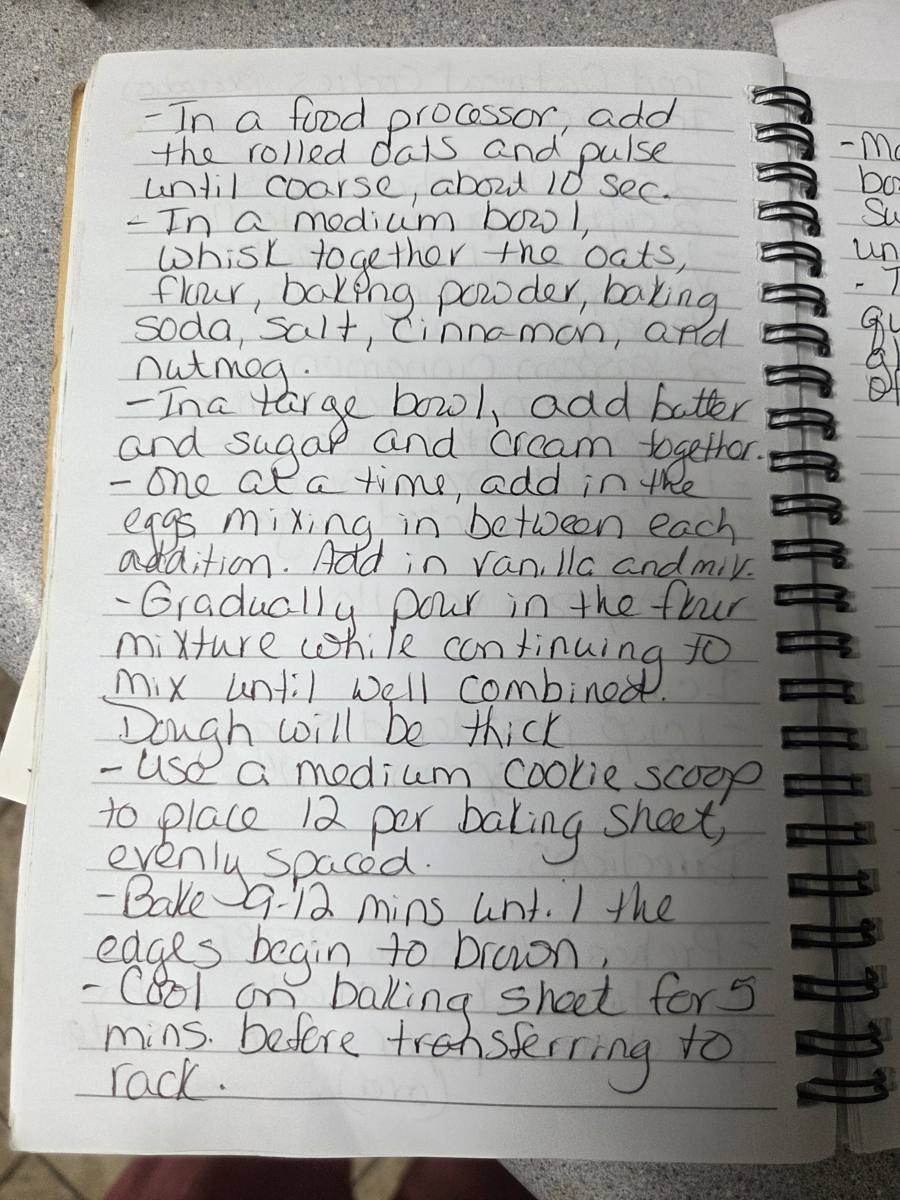 - In a food processor, add
the rolled oats and pulse
until coarse, about 10 sec.
- In a medium bowl,
whisk together the oats,
flour, baking powder, baking
soda, salt, cinnamon, and
nutmeg.
- In a large bowl, add butter
and sugar and cream together.
- One at a time, add in the
eggs mixing in between each
addition. Add in vanilla and mix.
- Gradually pour in the flour
mixture while continuing to
mix until well combined.
Dough will be thick
- Use a medium cookie scoop
to place 12 per baking sheet,
evenly spaced.
- Bake 9-12 mins until the
edges begin to brown.
- Cool on baking sheet for 5
mins. before transferring to
rack.